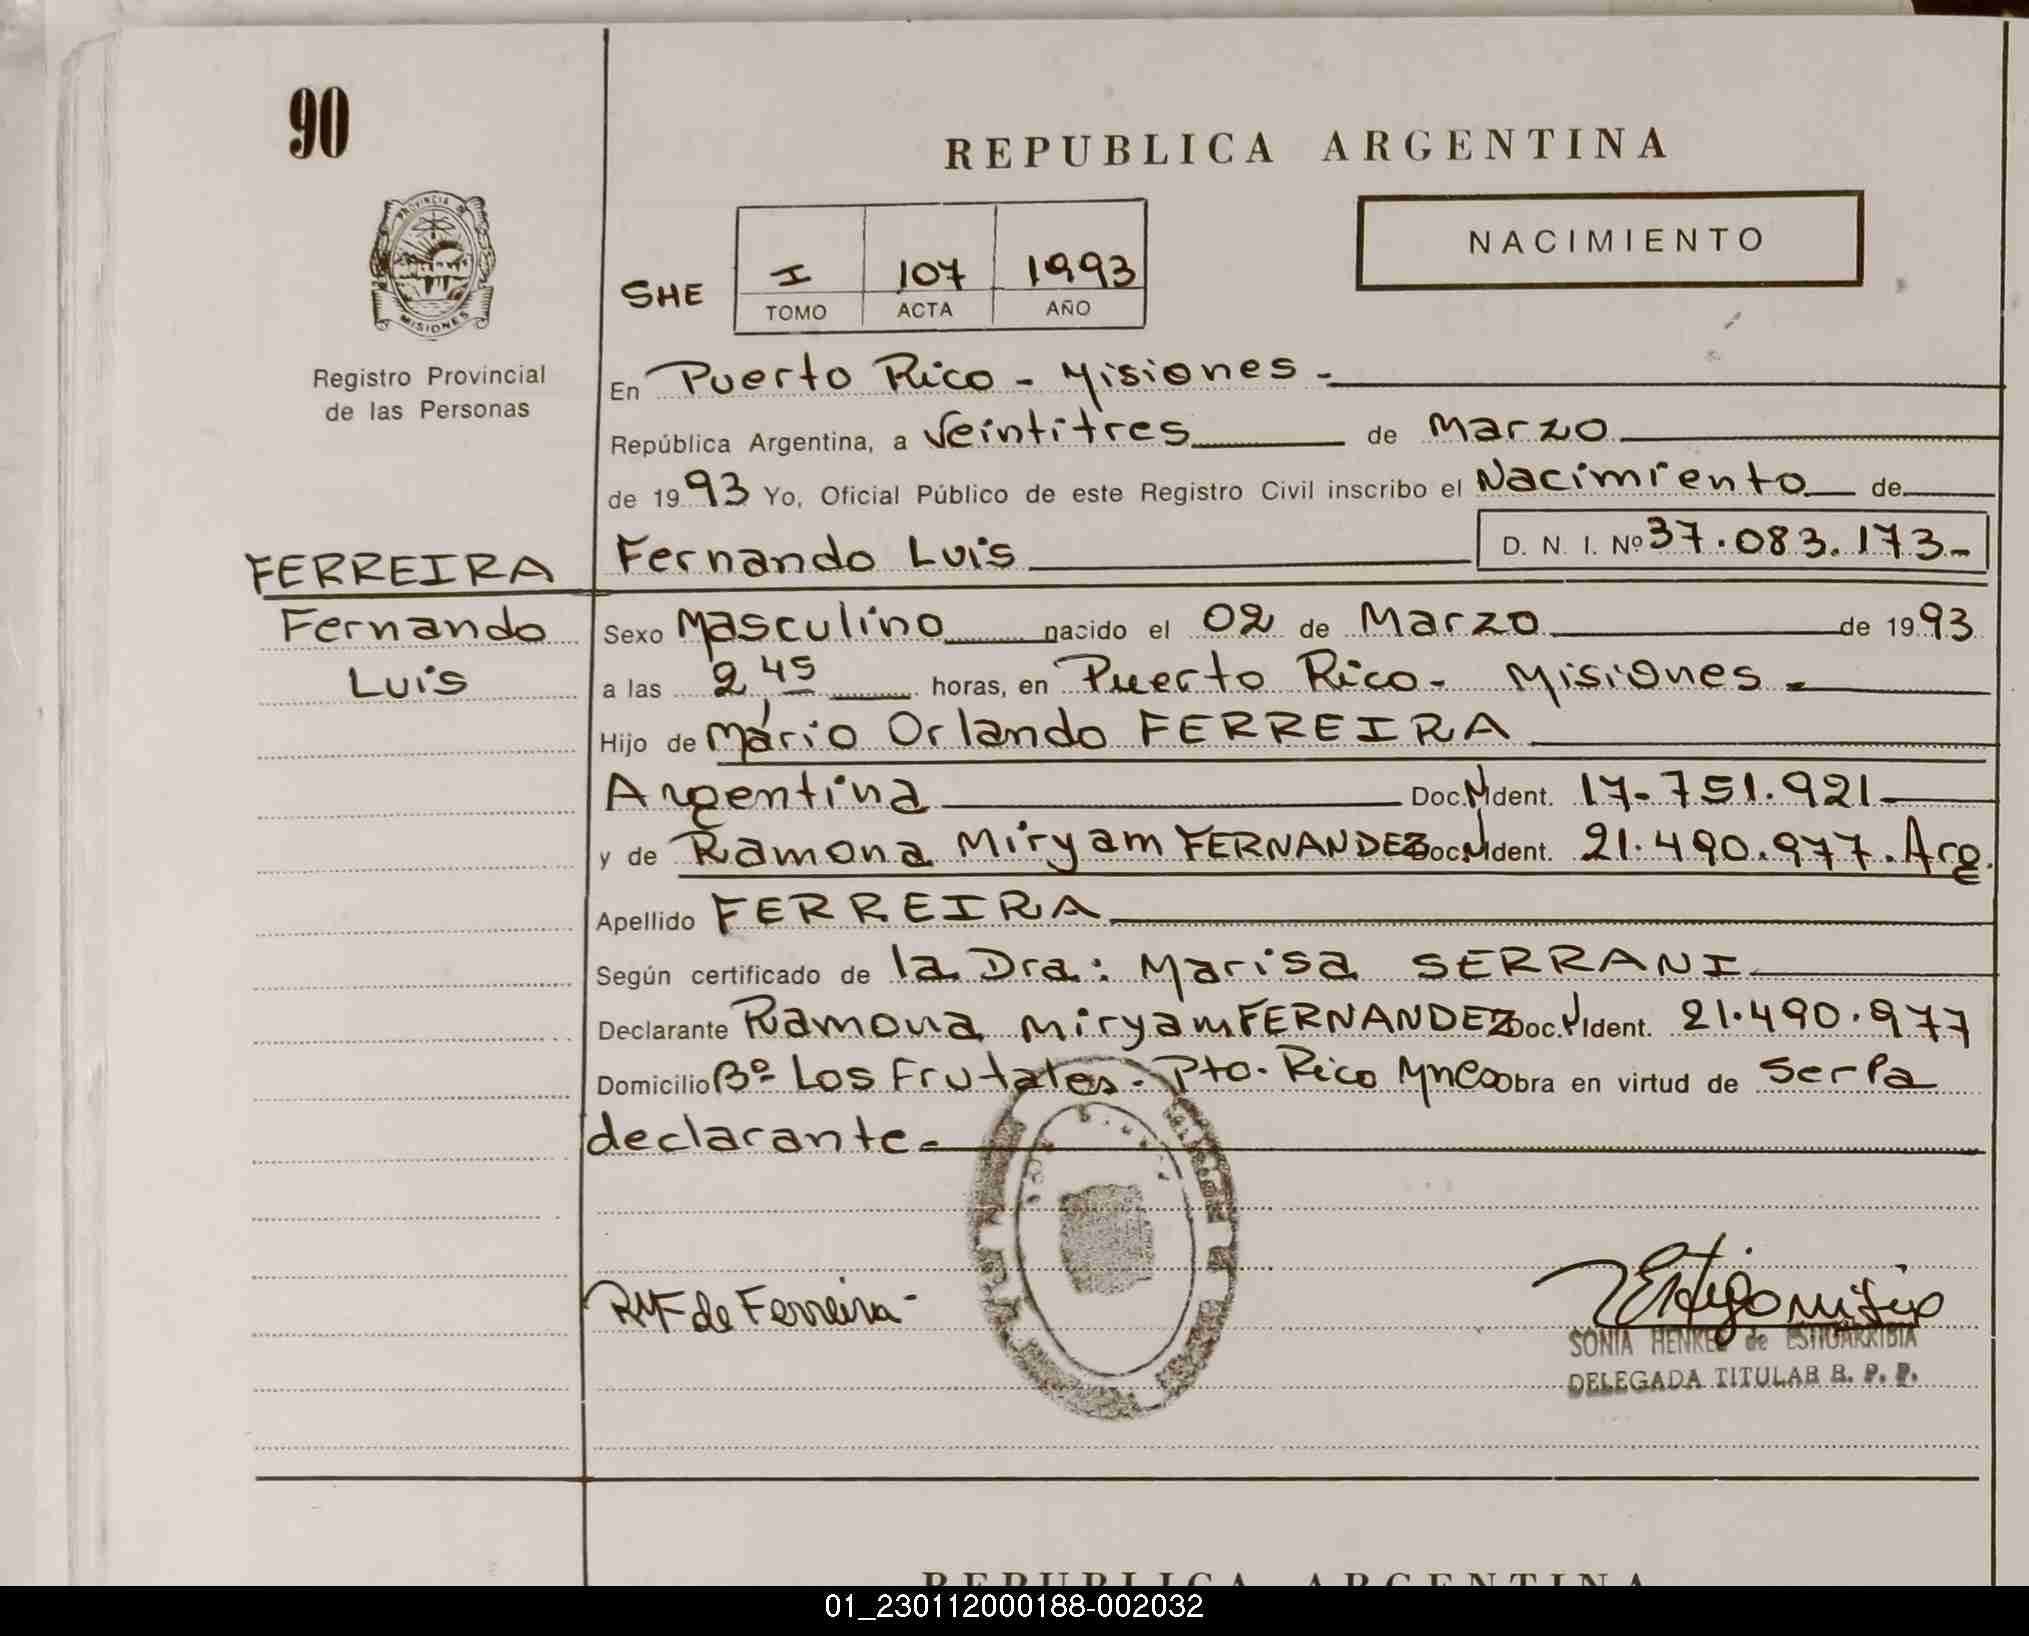 90
REPUBLICA ARGENTINA
PROVINCIA DE
MISIONES
Registro Provincial
de las Personas
NACIMIENTO
SHE I 107 1993
TOMO ACTA AÑO
En Puerto Rico - Misiones -
República Argentina, a Veintitres de Marzo
de 1993 Yo, Oficial Público de este Registro Civil inscribo el Nacimiento de
FERREIRA Fernando Luis D. N. I. Nº 37.083.173-
Fernando Sexo Masculino nacido el 02 de Marzo de 1993
Luis a las 2 45 horas, en Puerto Rico - Misiones -
Hijo de Mário Orlando FERREIRA
Argentina Doc. Ident. 17.751.921
y de Ramona Miryam FERNANDEZ Doc. Ident. 21.490.977. Arg.
Apellido FERREIRA
Según certificado de la Dra: Marisa SERRANI
Declarante Ramona Miryam FERNANDEZ Doc. Ident. 21.490.977
Domicilio Bº Los Frutales. Pto. Rico Mnes Obra en virtud de Ser la
declarante.
RMF de Ferreira
SONIA HENKEL de ESTIGARRIBIA
DELEGADA TITULAR R. P. P.
REPUBLICA ARGENTINA
01_230112000188-002032